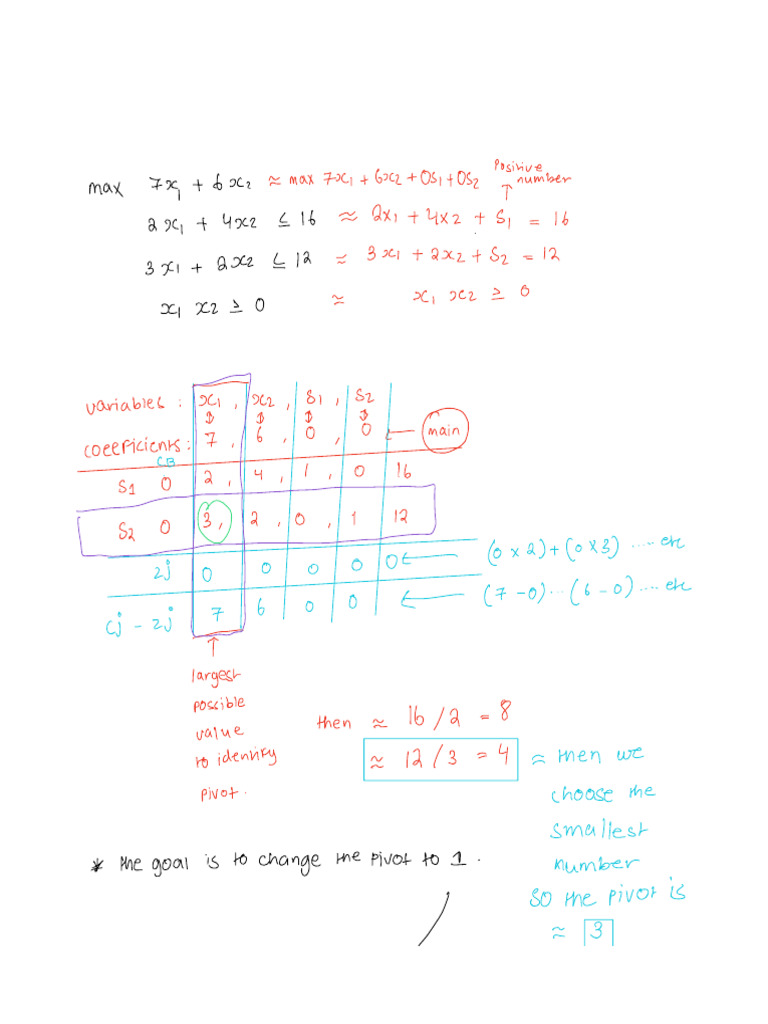 max 7x₁ + 6x₂ ≈ max 7x₁ + 6x₂ + 0s₁ + 0s₂
positive number
↑
2x₁ + 4x₂ ≤ 16 ≈ 2x₁ + 4x₂ + s₁ = 16
3x₁ + 2x₂ ≤ 12 ≈ 3x₁ + 2x₂ + s₂ = 12
x₁ x₂ ≥ 0 ≈ x₁ x₂ ≥ 0
variables : x₁ , x₂ , s₁ , s₂
coefficients : 7 , 6 , 0 , 0 ← main
CB
s₁ 0 2 , 4 , 1 , 0 16
s₂ 0 3 , 2 , 0 , 1 12
zj 0 0 0 0 0 ← (0 x 2) + (0 x 3) ..... etc
cj - zj 7 6 0 0 ← (7 - 0) ... (6 - 0) ..... etc
↑
largest
possible
value
to identify
pivot .
then ≈ 16 / 2 = 8
≈ 12 / 3 = 4 ≈ then we
choose the
smallest
number
so the pivot is
≈ 3
* the goal is to change the pivot to 1 .